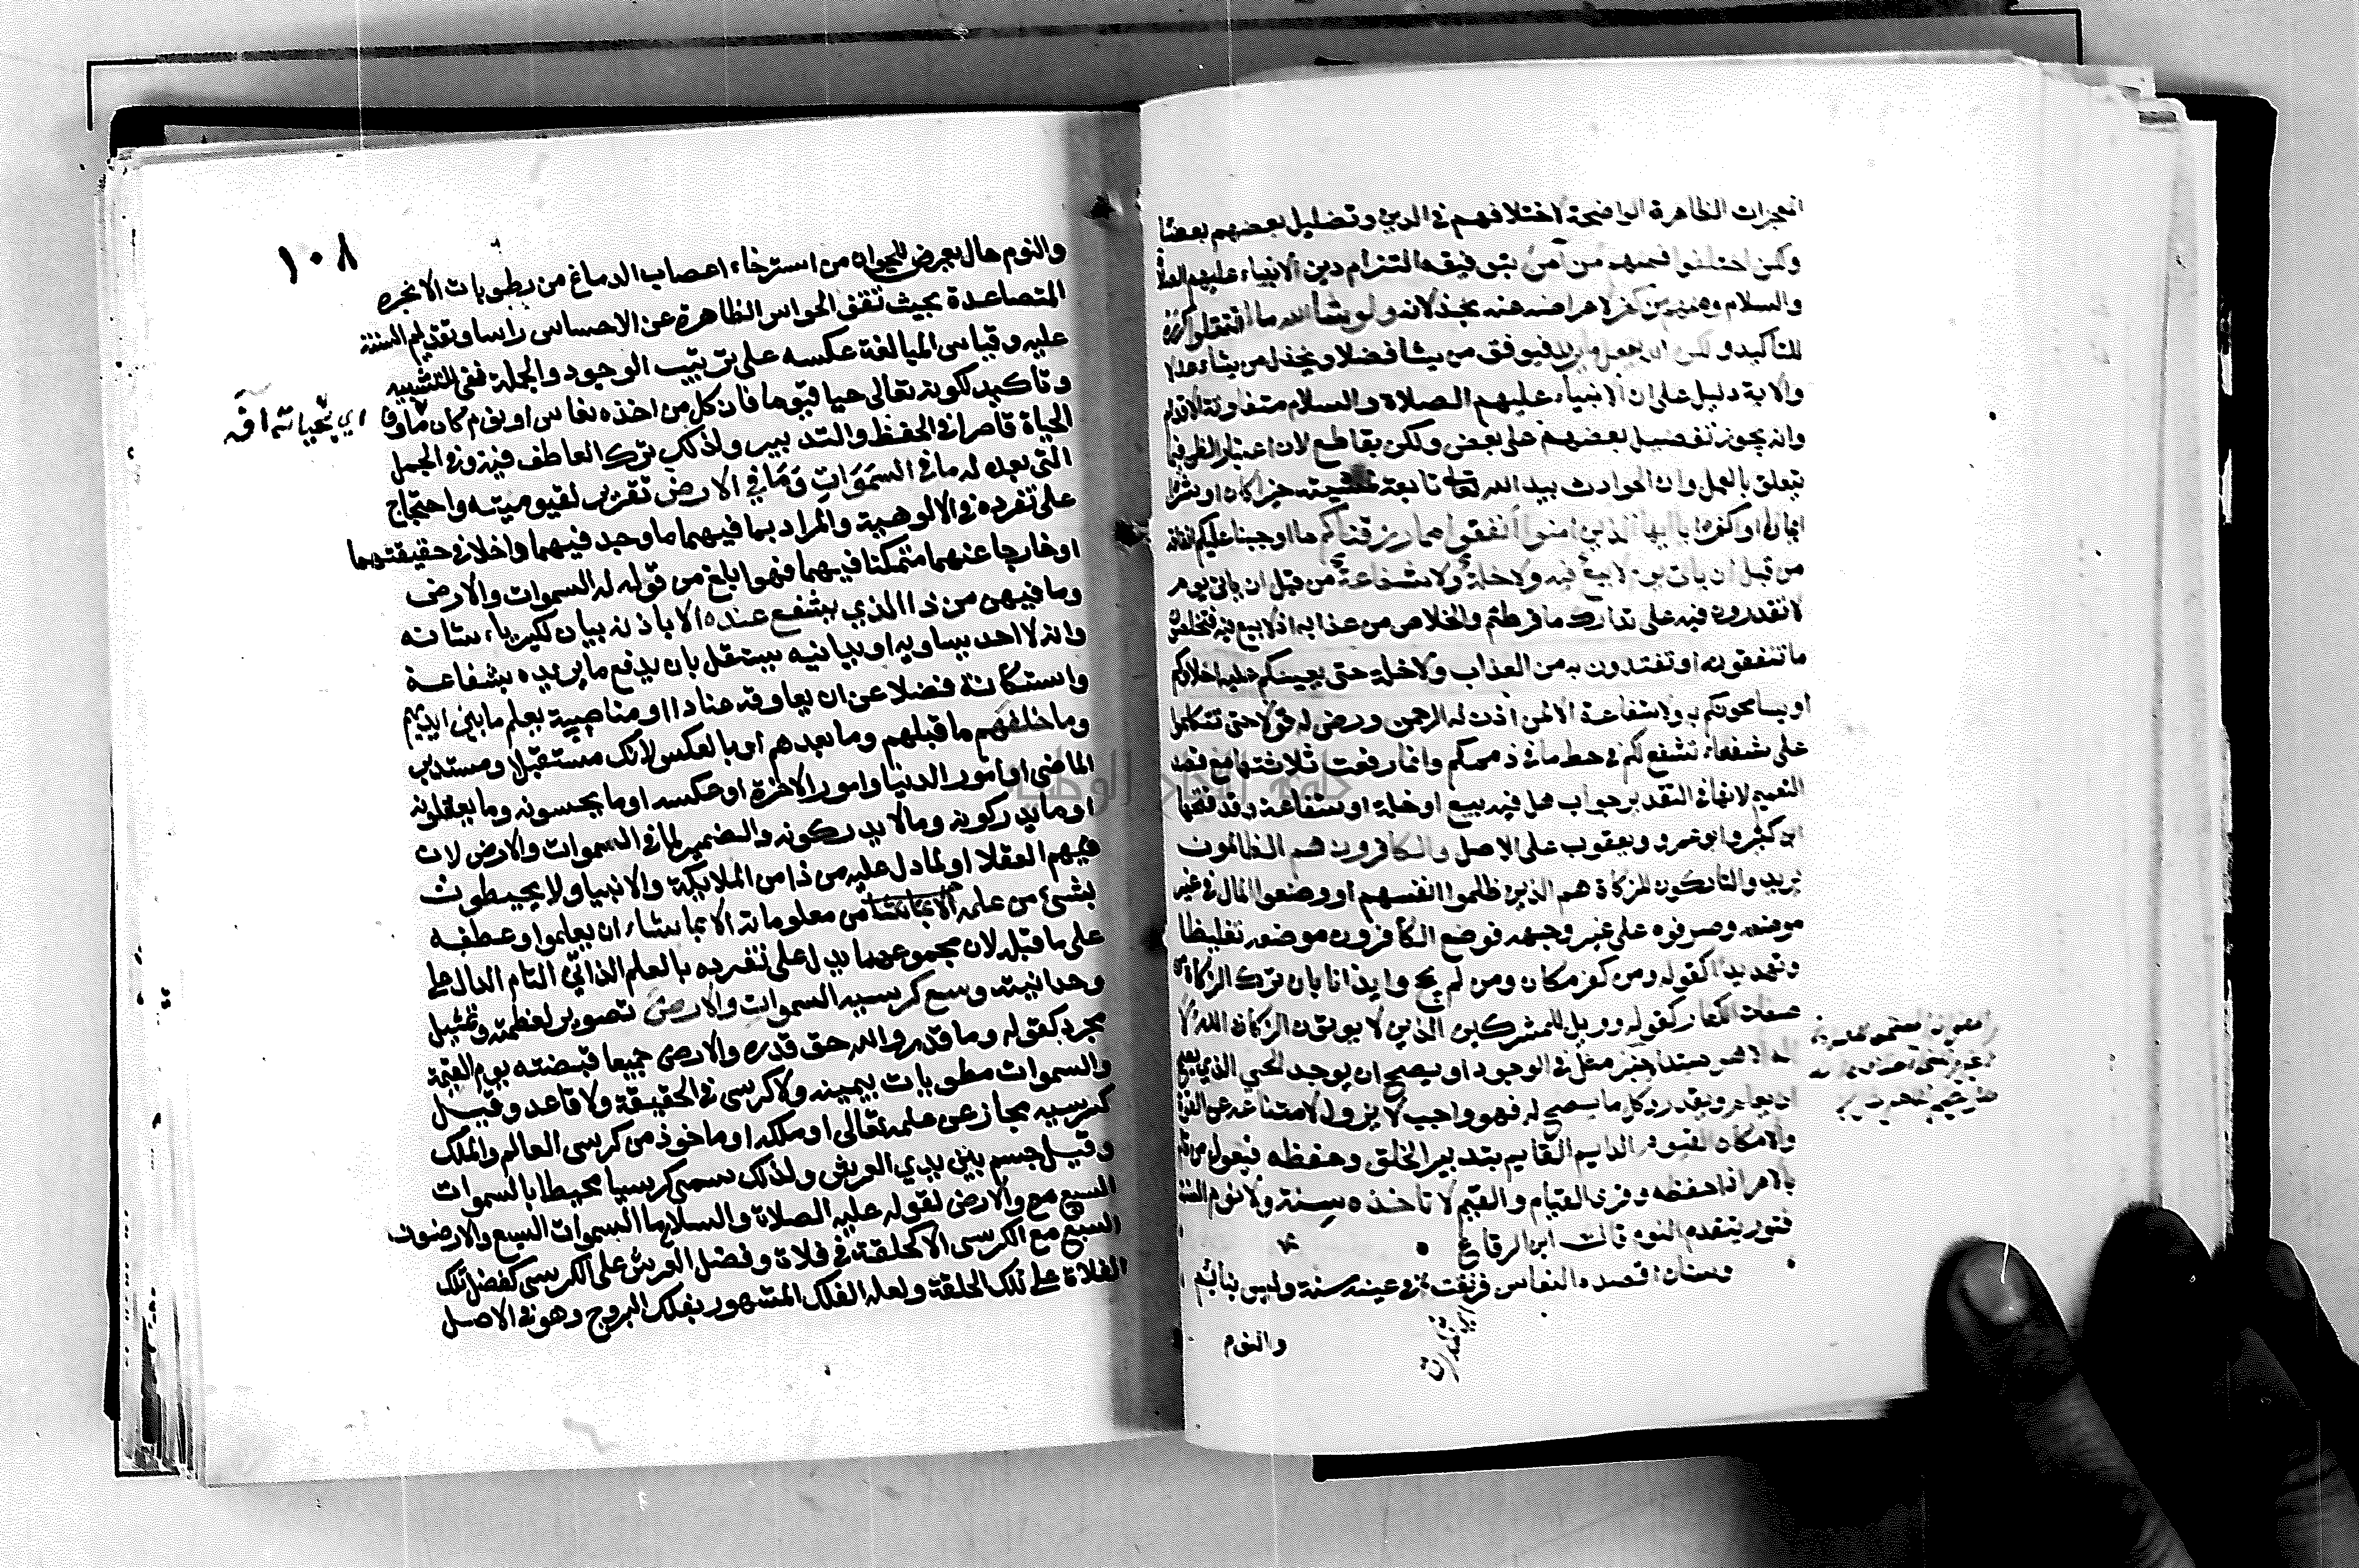 المعجزات الظاهرة الواضحة لاختلافهم في الدين وتضليل بعضهم بعضا
ولكن اختلفوا فمنهم من آمن بتوفيقه التزام دين الانبياء عليهم الصلاة
والسلام ومنهم من كفر لاعراضه عنه بخذلانه ولو شأ الله ما اقتتلوا كرره
للتاكيد ولكن الله يفعل ما يريد فيوفق من يشا فضلا ويخذل من يشاء عدلا
والاية دليل على ان الانبياء عليهم الصلاة والسلام متفاوتة الاقدام
وانه يجوز تفضيل بعضهم على بعض ولكن بقاطع لان اعتبار الظن فيما
تيعلق بالعمل وان الحوادث بيد الله تعالى تابعة لمشيته خيرا كان او شرا
ايمانا او كفرا يا ايها الذين امنوا أنفقوا مما رزقناكم ما اوجبنا عليكم انفاقه
من قبل ان يات يوم لا بيع فيه ولا خلة ولا شفاعة من قبل ان ياتي يوم
لا تقدرون فيه على تدارك ما فرطتم والخلاص من عذابه اذ لا بيع فيه فتحصلون
ما تنفقونه او تفتدون به من العذاب ولا خلة حتى يعينكم عليه اخلاؤكم
او يسامحونكم به ولا شفاعة الا لمن اذن له الرحمن ورضى له قولا حتى تتكلوا
على شفعاء تشفع لكم في حط ما في ذممكم وانما رفعت ثلاثتها مع قصد
التعميم لانها في التقدير جواب هل فيه بيع او خلة او شفاعة وقد فتحها
ابن كثير وابو عمرو ويعقوب على الاصل والكافرون هم الظالمون
يريد والتاركون للزكاة هم الذين ظلموا انفسهم او وضعوا المال في غير
موضعه وصرفوه على غير وجهه فوضع الكافرون موضعه تغليظا
وتهديدا كقوله ومن كفر مكان ومن لم يحج وايذانا بان ترك الزكاة من
صفات الكفار كقوله وويل للمشركين الذين لا يوتون الزكاة الله لا
اله الا هو مبتدا وخبر مثل في الوجود او يصح ان يوجد الحي الذي يصح
ان يعلم ويقدر وكل ما يصح له فهو واجب لا يزول لامتناعه عن القوة
والامكان القيوم الدايم القايم بتدبير الخلق وحفظه فيعول من قام
بالامر اذا حفظه وقرى القيام والقيم لا تاخذه سنة ولا نوم السنة
فتور يتقدم النوم قالت ابن الرقاع
وسنان اقصده النعاس فرنقت في عينه سنة وليس بنايم
والنوم
١٠٨
والنوم حال يعرض للحيوان من استرخاء اعصاب الدماغ من رطوبات الابخرة
المتصاعدة بحيث تقف الحواس الظاهرة عن الاحساس راسا وتقديم السنة
عليه وقياس المبالغة عكسه على ترتيب الوجود والجملة نفى للتشبيه
وتاكيد لكونه تعالى حيا قيوما فان كل من اخذه نعاس او نوم كان مأوف
اي بحياته آفة
الحياة قاصرا في الحفظ والتدبير ولذلك ترك العاطف فيه وفي الجمل
التي بعده له ما في السموات وما في الارض تقرير لقيوميته واحتجاج
على تفرده في الالوهية والمراد بما فيهما ما وجد فيهما داخلا في حقيقتهما
او خارجا عنهما متمكنا فيهما فهو ابلغ من قوله له السموات والارض
وما فيهن من ذا الذي يشفع عنده الا باذنه بيان لكبرياء شانه
وانه لا احد يساويه او يدانيه يستقل بان يدفع ما يريده بشفاعة
واستكانة فضلا عن ان يعاوقه عنادا او مناصبة يعلم ما بين ايديهم
وما خلفهم ما قبلهم وما بعدهم او بالعكس لانك مستقبل ومستدبر
الماضى او امور الدنيا وامور الاخرة او عكسه او ما يحسونه وما يعقلونه
او ما يدركونه وما لا يدركونه والضمير لما في السموات والارض لان
فيهم العقلا او لما دل عليه من ذا من الملايكة والانبيا ولا يحيطون
بشئ من علمه من معلوماته الا بما شاء ان يعلموا وعطفه
على ما قبله لان مجموعهما يدل على تفرده بالعلم الذاتي التام الدال على
وحدانيته وسع كرسيه السموات والارض تصوير لعظمته وتمثيل
مجرد كقوله وما قدروا الله حق قدره والارض جميعا قبضته يوم القيمة
والسموات مطويات بيمينه ولا كرسى في الحقيقة ولا قاعد وقيل
كرسيه مجاز عن علمه تعالى او ملكه او ماخوذ من كرسى العالم والملك
وقيل جسم بين يدي العرش ولذلك سمى كرسيا محيطا بالسموات
السبع مع والارض لقوله عليه الصلاة والسلام ما السموات السبع والارضون
السبع مع الكرسى الا كحلقة في فلاة وفضل العرش على الكرسى كفضل تلك
الفلاة على تلك الحلقة ولعله الفلك المشهور بفلك البروج وهو في الاصل